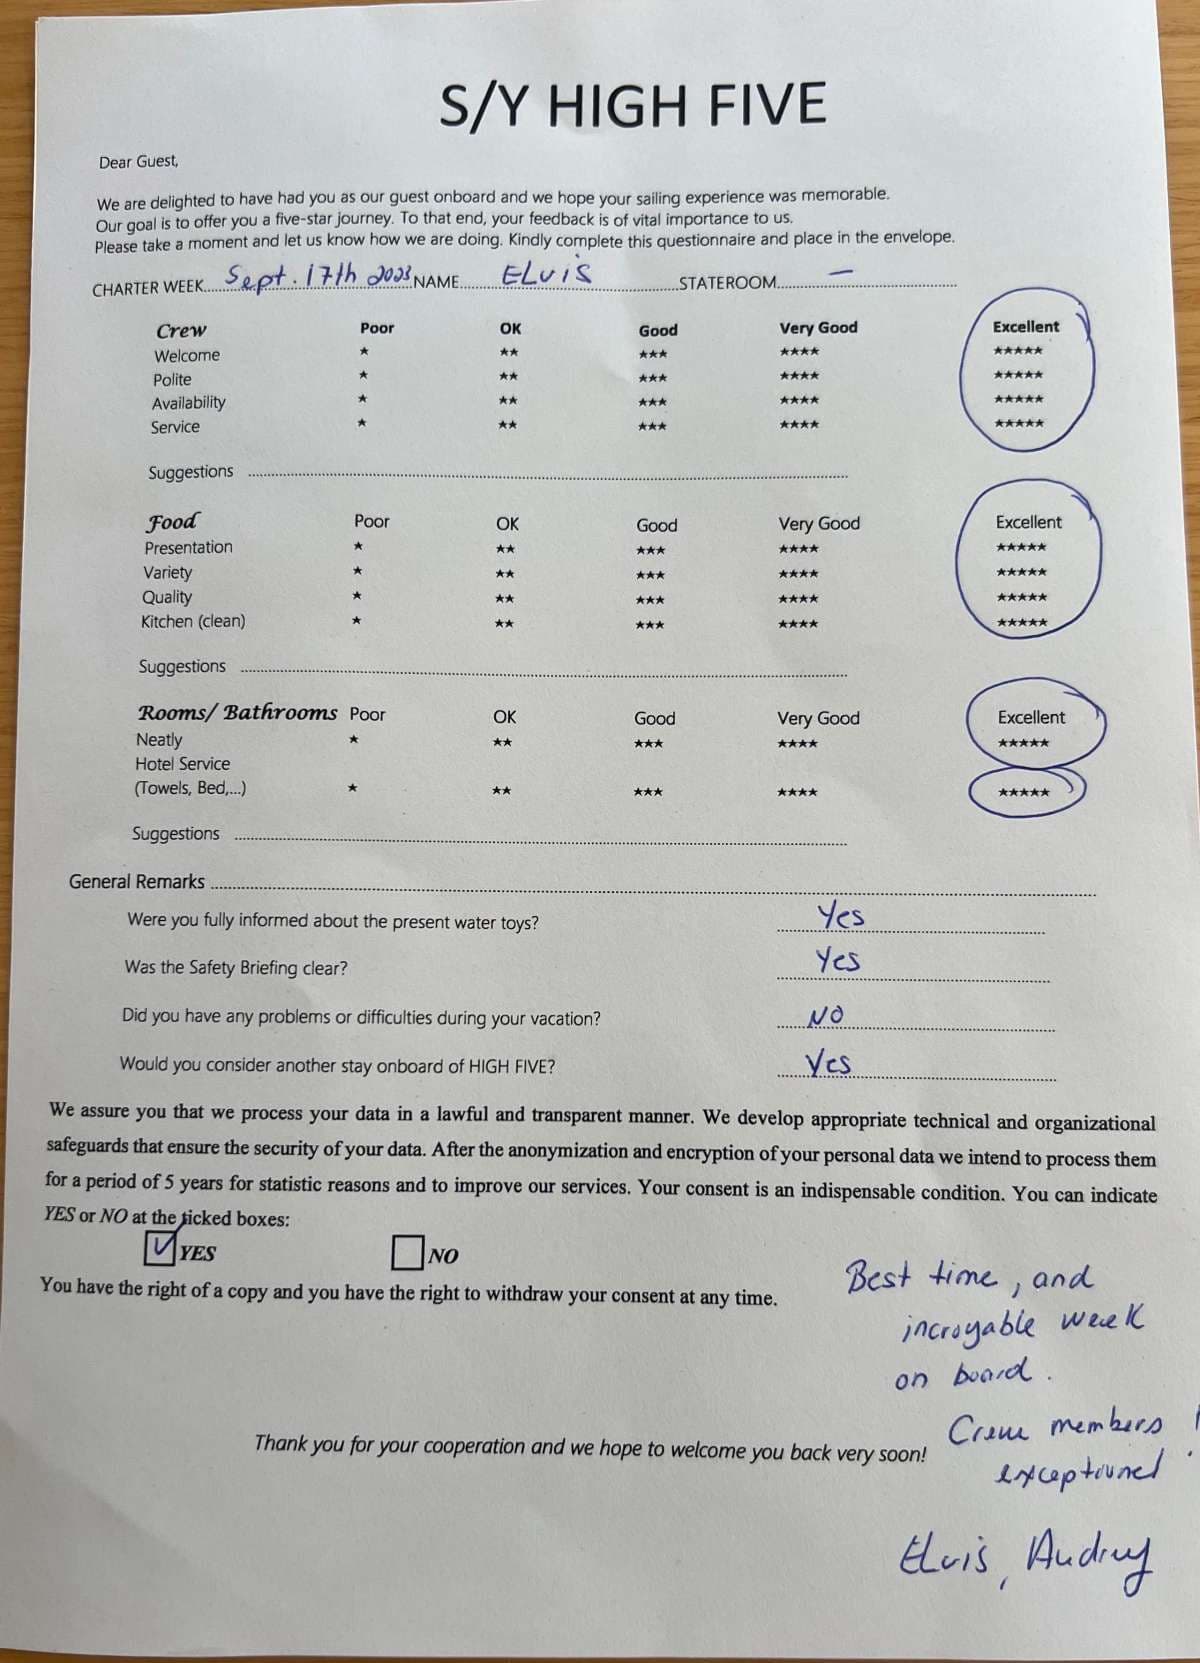 S/Y HIGH FIVE
Dear Guest,
We are delighted to have had you as our guest onboard and we hope your sailing experience was memorable.
Our goal is to offer you a five-star journey. To that end, your feedback is of vital importance to us.
Please take a moment and let us know how we are doing. Kindly complete this questionnaire and place in the envelope.
CHARTER WEEK Sept. 17th 2023 NAME ELviS STATEROOM —
Crew Poor OK Good Very Good Excellent
Welcome ★ ★★ ★★★ ★★★★ ★★★★★
Polite ★ ★★ ★★★ ★★★★ ★★★★★
Availability ★ ★★ ★★★ ★★★★ ★★★★★
Service ★ ★★ ★★★ ★★★★ ★★★★★
Suggestions
Food Poor OK Good Very Good Excellent
Presentation ★ ★★ ★★★ ★★★★ ★★★★★
Variety ★ ★★ ★★★ ★★★★ ★★★★★
Quality ★ ★★ ★★★ ★★★★ ★★★★★
Kitchen (clean) ★ ★★ ★★★ ★★★★ ★★★★★
Suggestions
Rooms/ Bathrooms Poor OK Good Very Good Excellent
Neatly ★ ★★ ★★★ ★★★★ ★★★★★
Hotel Service
(Towels, Bed,...) ★ ★★ ★★★ ★★★★ ★★★★★
Suggestions
General Remarks
Were you fully informed about the present water toys? Yes
Was the Safety Briefing clear? Yes
Did you have any problems or difficulties during your vacation? NO
Would you consider another stay onboard of HIGH FIVE? Yes
We assure you that we process your data in a lawful and transparent manner. We develop appropriate technical and organizational
safeguards that ensure the security of your data. After the anonymization and encryption of your personal data we intend to process them
for a period of 5 years for statistic reasons and to improve our services. Your consent is an indispensable condition. You can indicate
YES or NO at the ticked boxes:
YES NO
You have the right of a copy and you have the right to withdraw your consent at any time.
Best time, and
incroyable week
on board.
Crew members !
exceptionnel
Thank you for your cooperation and we hope to welcome you back very soon!
Elvis, Audrey